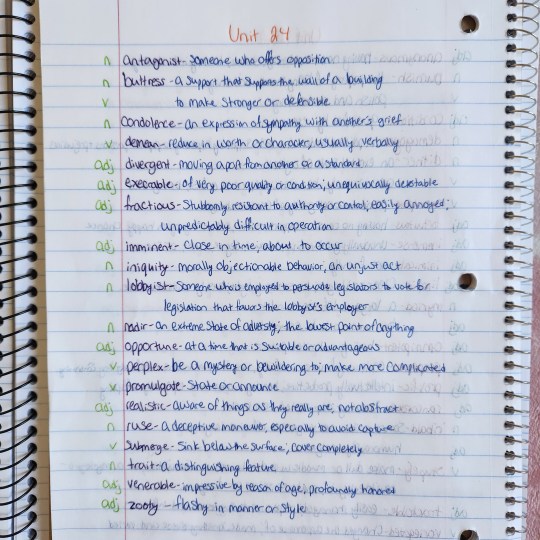 Unit 24
n antagonist - someone who offers opposition
n buttress - a support that supports the wall of a building
v to make stronger or defensible
n condolence - an expression of sympathy with another's grief
v demean - reduce in worth or character, usually verbally
adj divergent - moving apart from another or a standard
adj execrable - of very poor quality or condition; unequivocally detestable
adj fractious - Stubbornly resistant to authority or control; easily annoyed;
unpredictably difficult in operation
adj imminent - close in time, about to occur
n iniquity - morally objectionable behavior, an unjust act
n lobbyist - someone who is employed to persuade legislators to vote for
legislation that favors the lobbyist's employer
n nadir - an extreme state of adversity; the lowest point of anything
adj opportune - at a time that is suitable or advantageous
v perplex - be a mystery or bewildering to; make more complicated
v promulgate - state or announce
adj realistic - aware of things as they really are, not abstract
n ruse - a deceptive maneuver, especially to avoid capture
v submerge - sink below the surface; cover completely
n trait - a distinguishing feature
adj venerable - impressive by reason of age; profoundly honored
adj zooty - flashy in manner or style